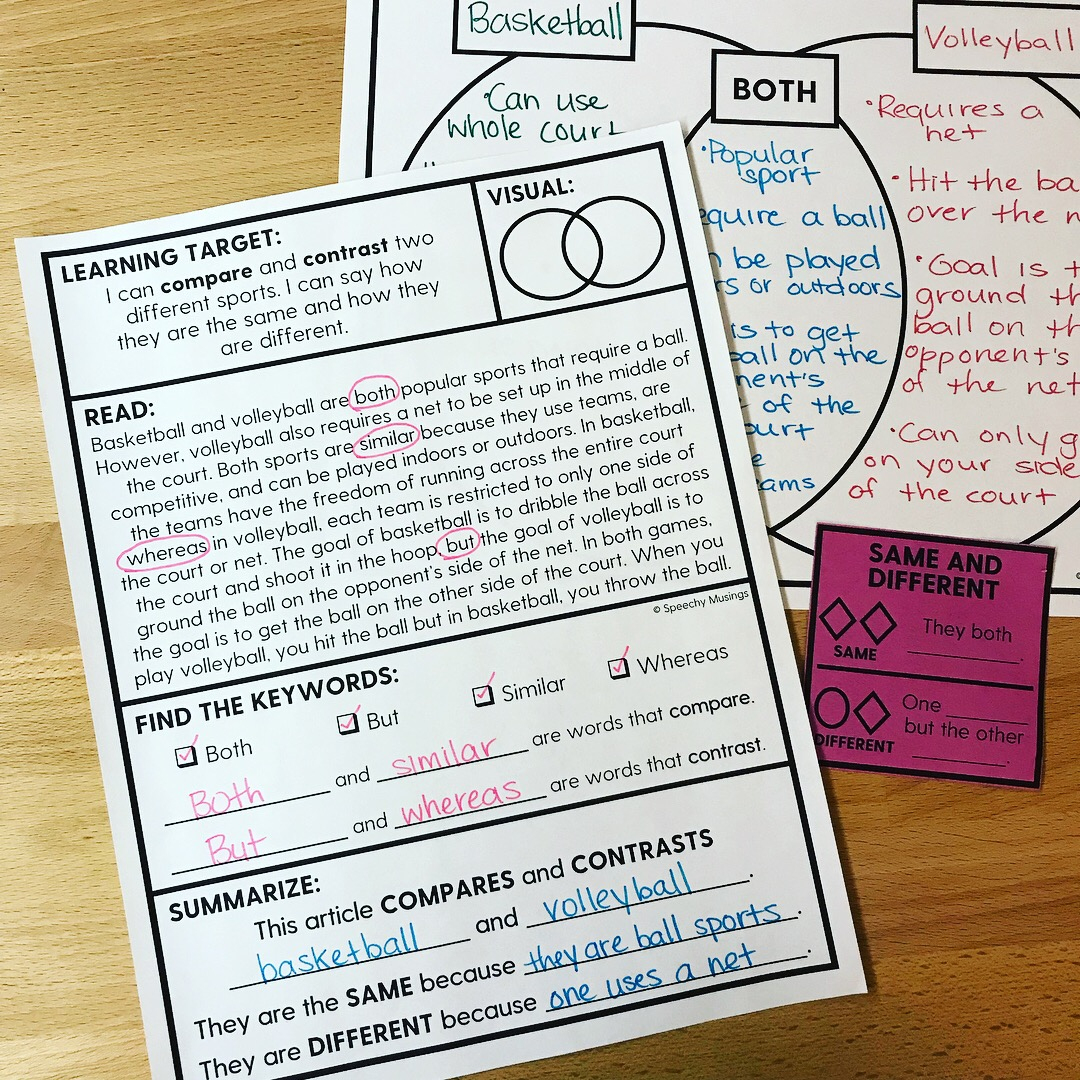 Basketball
BOTH
Volleyball
•Can use
whole court
•Popular
sport
equire a ball
be played
or outdoors
is to get
ball on the
of the
•Requires a
net
•Hit the
over the
•Goal is
ground
ball on
opponent's
of the net
•Can only
on your side
of the court
LEARNING TARGET:
I can compare and contrast two
different sports. I can say how
they are the same and how they
are different.
VISUAL:
READ:
Basketball and volleyball are both popular sports that require a ball.
However, volleyball also requires a net to be set up in the middle of
the court. Both sports are similar because they use teams, are
competitive, and can be played indoors or outdoors. In basketball,
the teams have the freedom of running across the entire court
whereas in volleyball, each team is restricted to only one side of
the court or net. The goal of basketball is to dribble the ball across
the court and shoot it in the hoop, but the goal of volleyball is to
ground the ball on the opponent's side of the net. In both games,
the goal is to get the ball on the other side of the court. When you
play volleyball, you hit the ball but in basketball, you throw the ball.
© Speechy Musings
FIND THE KEYWORDS:
Both But Similar Whereas
Both and similar are words that compare.
But and whereas are words that contrast.
SUMMARIZE:
This article COMPARES and CONTRASTS
basketball and volleyball.
They are the SAME because they are ball sports.
They are DIFFERENT because one uses a net.
SAME AND
DIFFERENT
They both
SAME
One
but the other
DIFFERENT